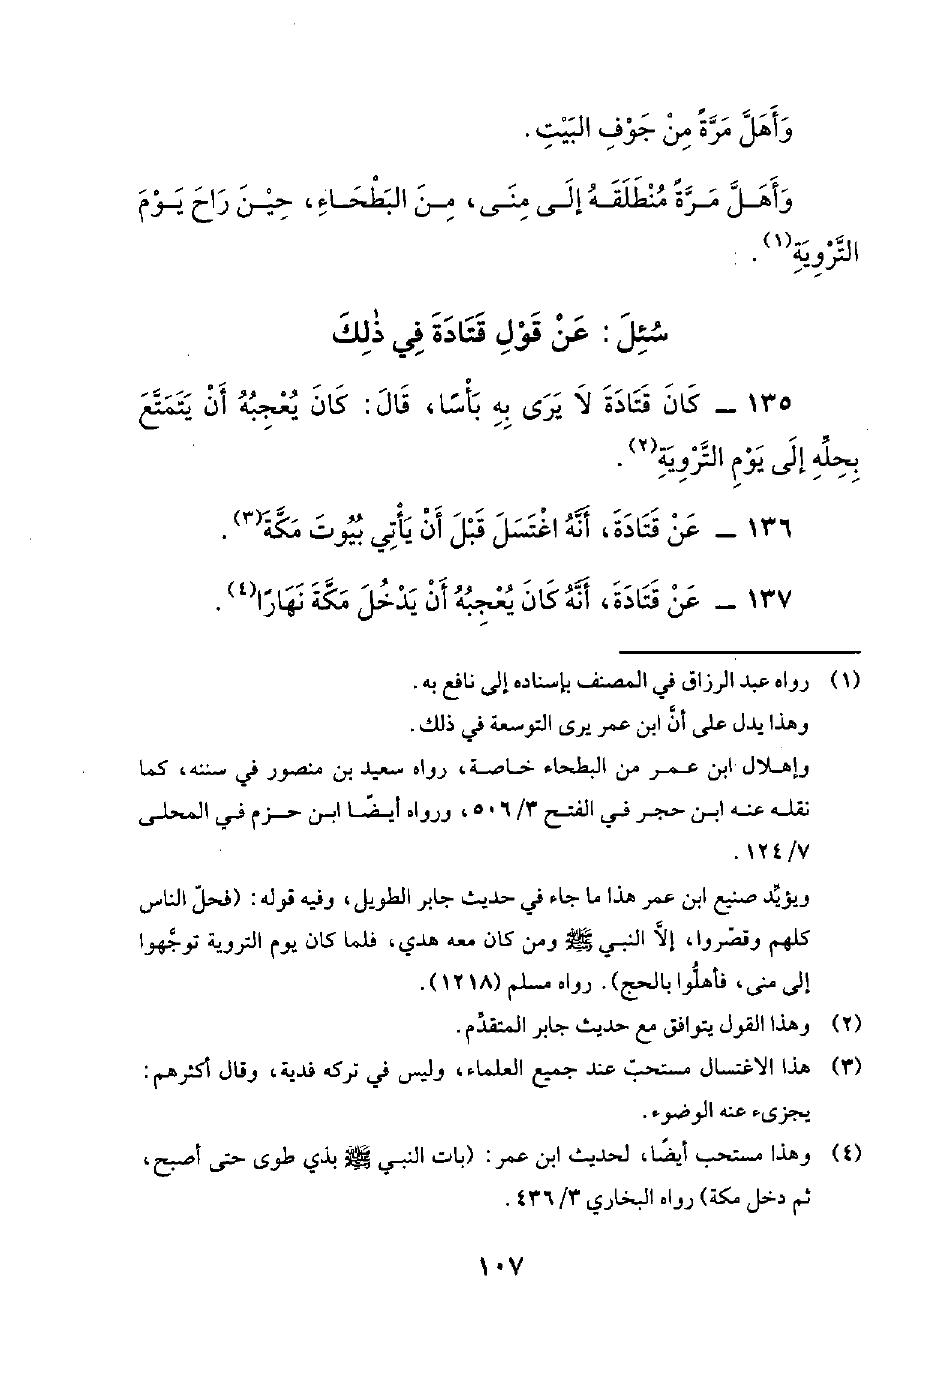 وَأَهَلَّ مَرَّةً مِنْ جَوْفِ البَيْتِ.
وَأَهَلَّ مَرَّةً مُنْطَلَقَهُ إِلَى مِنَى، مِنَ البَطْحَاءِ، حِيْنَ رَاحَ يَوْمَ
التَّرْوِيَةِ(١).
سُئِلَ: عَنْ قَوْلِ قَتَادَةَ فِي ذٰلِكَ
١٣٥ ـ كَانَ قَتَادَةَ لَا يَرَى بِهِ بَأْسًا، قَالَ: كَانَ يُعْجِبُهُ أَنْ يَتَمَتَّعَ
بِحِلِّهِ إِلَى يَوْمِ التَّرْوِيَةِ(٢).
١٣٦ ـ عَنْ قَتَادَةَ، أَنَّهُ اغْتَسَلَ قَبْلَ أَنْ يَأْتِي بُيُوتَ مَكَّةَ(٣).
١٣٧ ـ عَنْ قَتَادَةَ، أَنَّهُ كَانَ يُعْجِبُهُ أَنْ يَدْخُلَ مَكَّةَ نَهَارًا(٤).
(١) رواه عبد الرزاق في المصنف بإسناده إلى نافع به.
وهذا يدل على أنَّ ابن عمر يرى التوسعة في ذلك.
وإهلال ابن عمر من البطحاء خاصة، رواه سعيد بن منصور في سننه، كما
نقله عنه ابن حجر في الفتح ٥٠٦/٣، ورواه أيضًا ابن حزم في المحلى
١٢٤/٧.
ويؤيِّد صنيع ابن عمر هذا ما جاء في حديث جابر الطويل، وفيه قوله: (فحلّ الناس
كلهم وقصّروا، إلاَّ النبي ﷺ ومن كان معه هدي، فلما كان يوم التروية توجَّهوا
إلى منى، فأهلُّوا بالحج). رواه مسلم (١٢١٨).
(٢) وهذا القول يتوافق مع حديث جابر المتقدِّم.
(٣) هذا الاغتسال مستحبّ عند جميع العلماء، وليس في تركه فدية، وقال أكثرهم:
يجزىء عنه الوضوء.
(٤) وهذا مستحب أيضًا، لحديث ابن عمر: (بات النبي ﷺ بذي طوى حتى أصبح،
ثم دخل مكة) رواه البخاري ٤٣٦/٣.
١٠٧